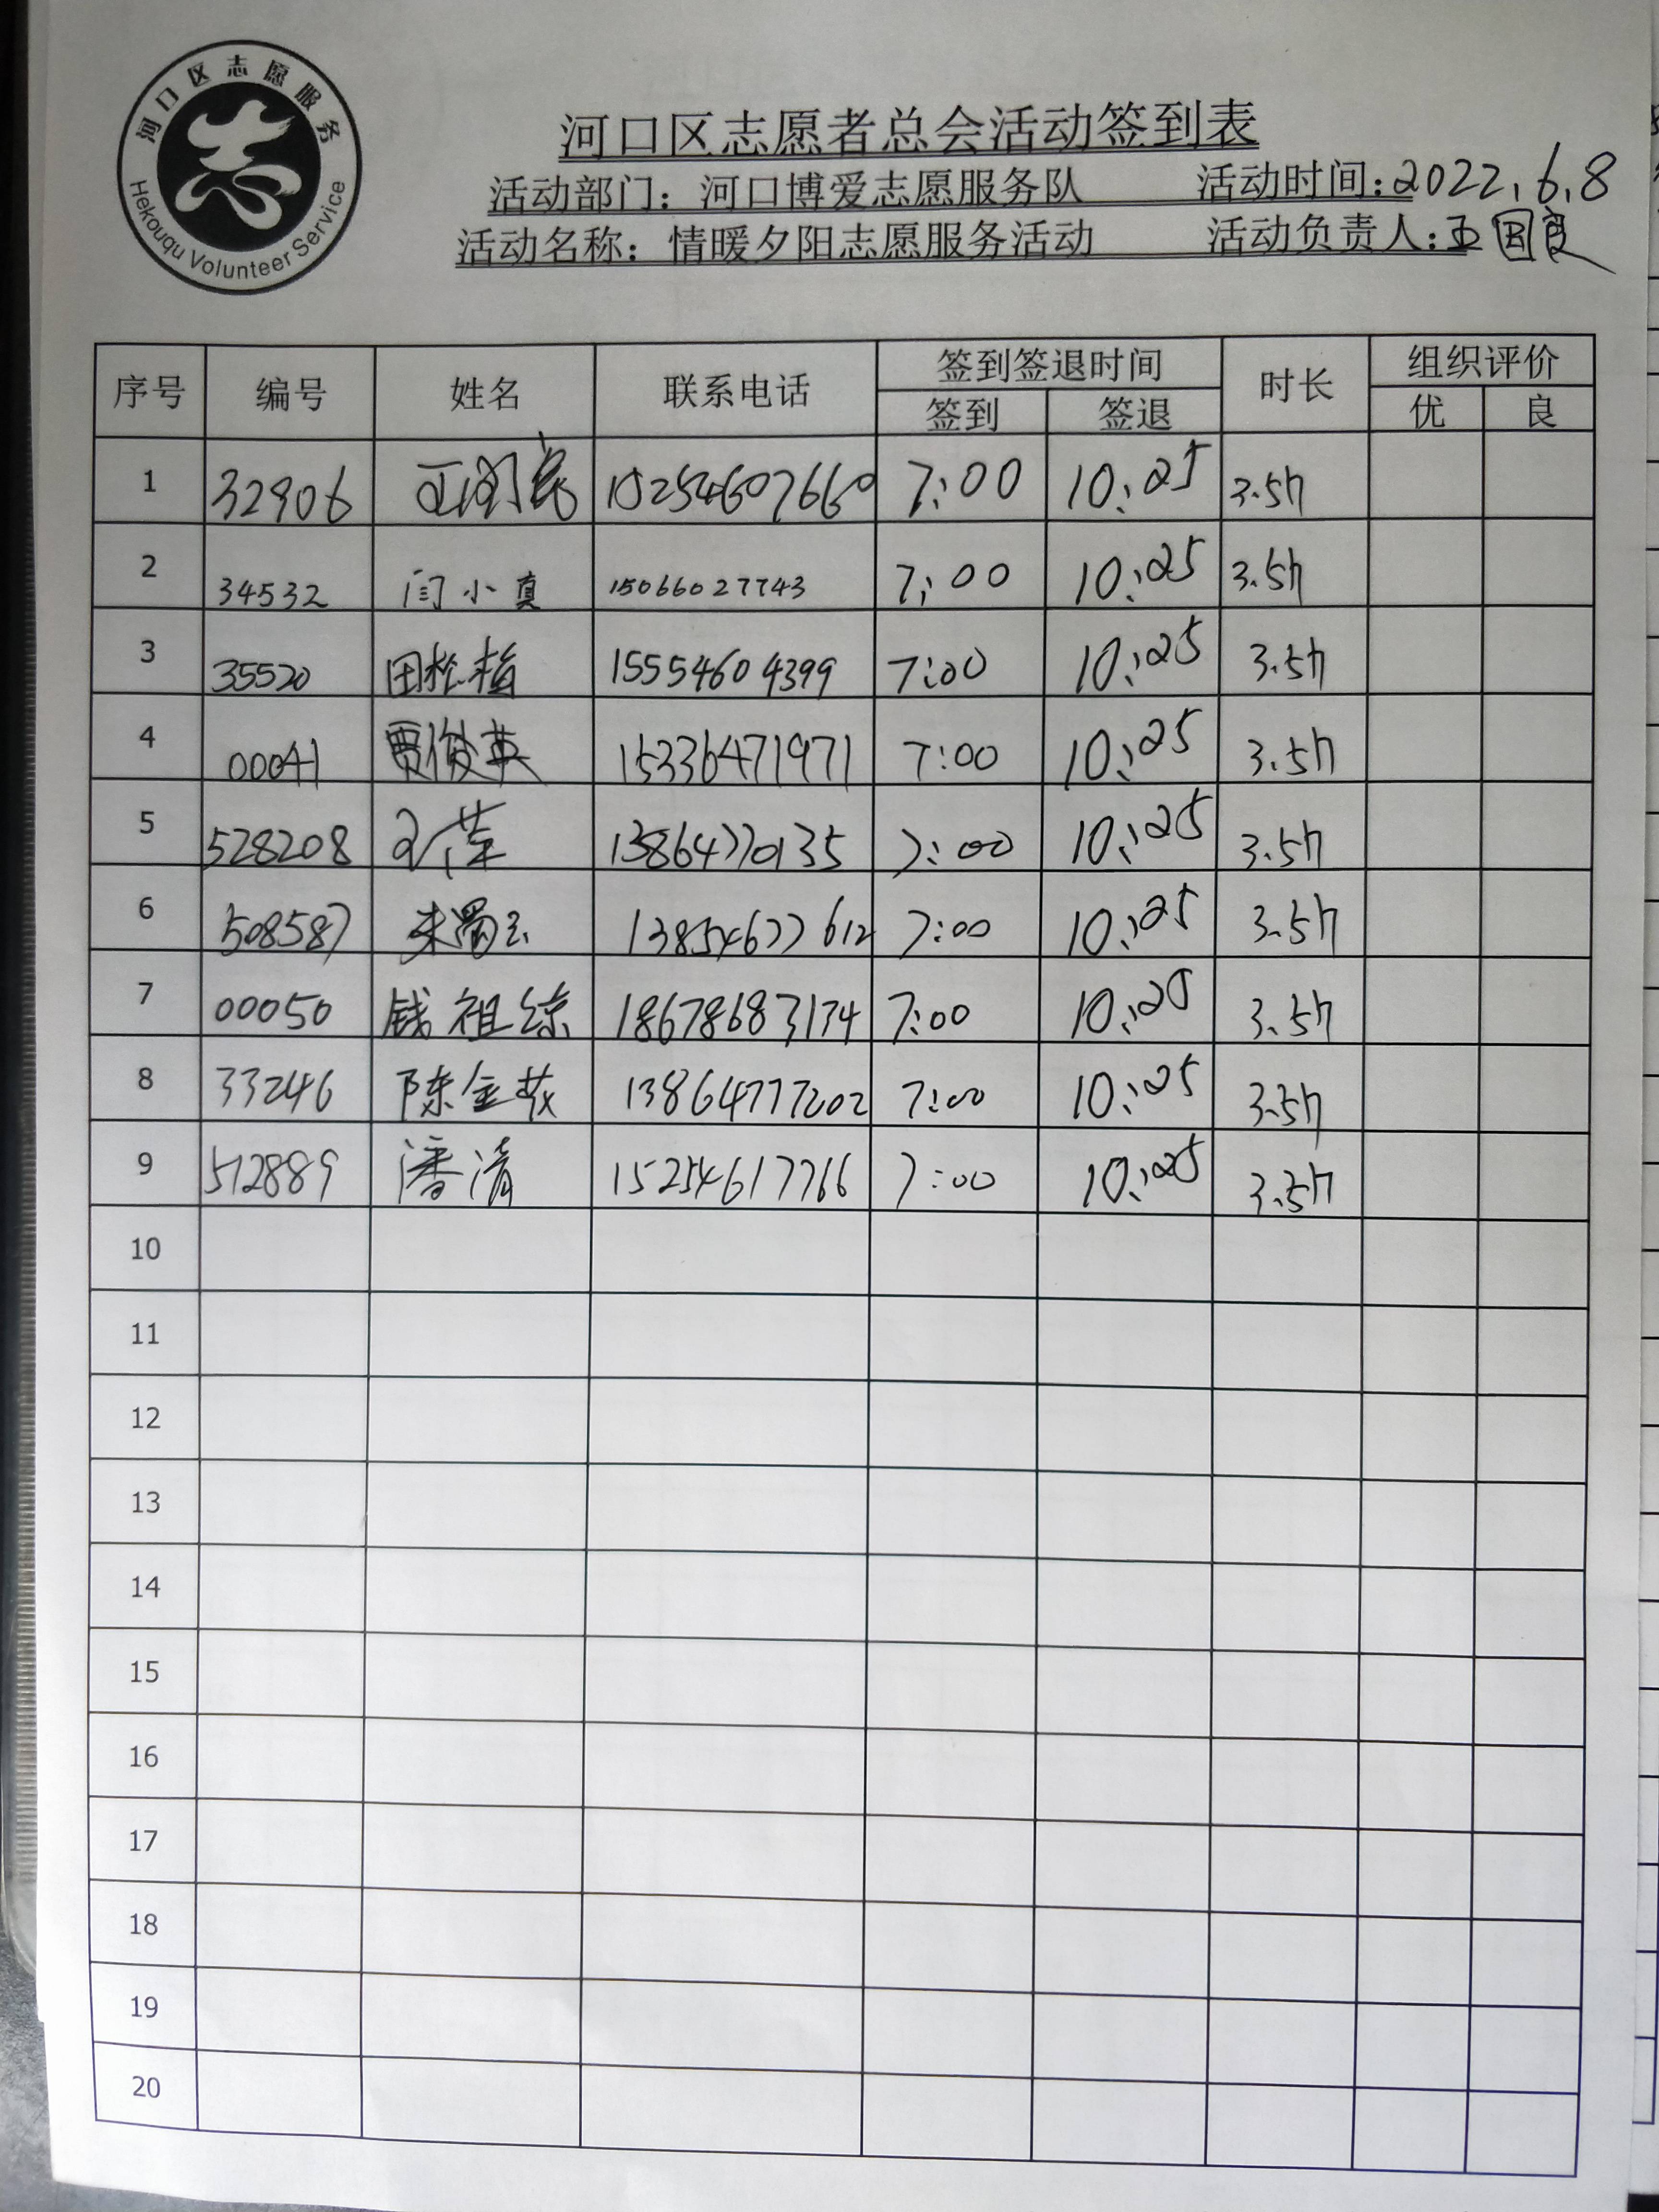 河口区志愿服务
Hekouqu Volunteer Service
河口区志愿者总会活动签到表
活动部门：河口博爱志愿服务队 活动时间:2022.6.8
活动名称：情暖夕阳志愿服务活动 活动负责人:王国良
序号 编号 姓名 联系电话 签到签退时间 时长 组织评价
签到 签退 优 良
1 32906 王国良 15254607660 7:00 10:25 3.5h
2 34532 闫小真 15066027743 7:00 10:25 3.5h
3 35520 田松梅 15554604399 7:00 10:25 3.5h
4 00041 贾俊英 15336471971 7:00 10:25 3.5h
5 528208 13864770135 7:00 10:25 3.5h
6 508587 13854677612 7:00 10:25 3.5h
7 00050 钱祖综 18678683134 7:00 10:25 3.5h
8 33246 陈金 13864777202 7:00 10:25 3.5h
9 512889 潘清 15254617766 7:00 10:25 3.5h
10
11
12
13
14
15
16
17
18
19
20